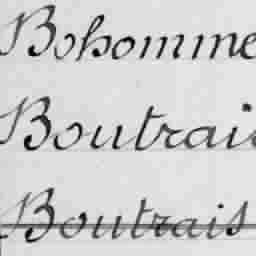 Bohomme
Boutrais
Boutrais